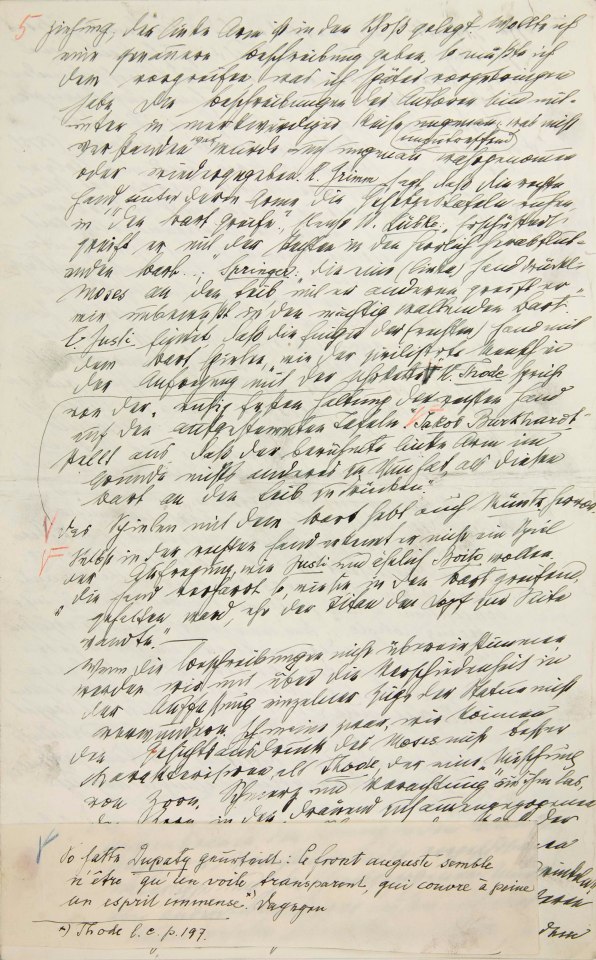 5
ziehung, der linke Arm ist in den Schoß gelegt. Wollte ich
eine genauere Beschreibung geben, so müßte ich
dem vorgreifen was ich später vorzubringen
habe. Die Beschreibungen der Autoren sind mit-
unter in merkwürdiger Weise ungenau; was nicht
unzutreffend
verstanden war wurde auch ungenau wahrgenommen
oder wiedergegeben. H. Grimm sagt, daß die rechte
Hand „unter deren Arme die Gesetzestafeln ruhen
in den Bart greife“, Ebenso W. Lübke: Erschüttert
greift er mit der Rechten in den herrlich herabflut-
enden Bart...; Springer: die eine (linke) Hand drückt
Moses an den Leib, mit der anderen greift er
wie unbewußt in den mächtig wallenden Bart.
C. Justi findet daß die Finger der (rechten) Hand mit
dem Bart spielen, „wie der zivilisirte Mensch in
der Aufregung mit der Uhrkette“. H. Thode spricht
von der „ruhig festen Haltung der rechten Hand
auf den aufgestemmten Tafeln“ Jakob Burkhardt
stellt aus „daß der berühmte linke Arm im
Grunde nichts anderes zu tun hat, als diesen
Bart an den Leib zu drücken“
Das Spielen mit dem Bart hebt auch Müntz hervor
Selbst in der rechten Hand erkennt er nicht ein Spiel
der Aufregung, wie Justi und ähnlich Boito wollen
„die Hand verharrt so, wie sie in den Bart greifend,
gehalten ward, ehe der Titan den Kopf zur Seite
wandte.“
Wenn die Beschreibungen nicht übereinstimmen
werden wir uns über die Verschiedenheit in
der Auffassung einzelner Züge der Statue nicht
verwundern. Ich meine zwar, wir können
den Gesichtsausdruck des Moses nicht besser
charakterisiren als Thode, der eine „Mischung
von Zorn, Schmerz und Verachtung“ aus ihm las,
den Zorn in den dräuend zusammengezogenen
So hatte Dupaty geurteilt: Le front auguste semble
n'être qu'un voile transparent, qui couvre à peine
un esprit immense. Dagegen
*) Thode l. c. p. 197.